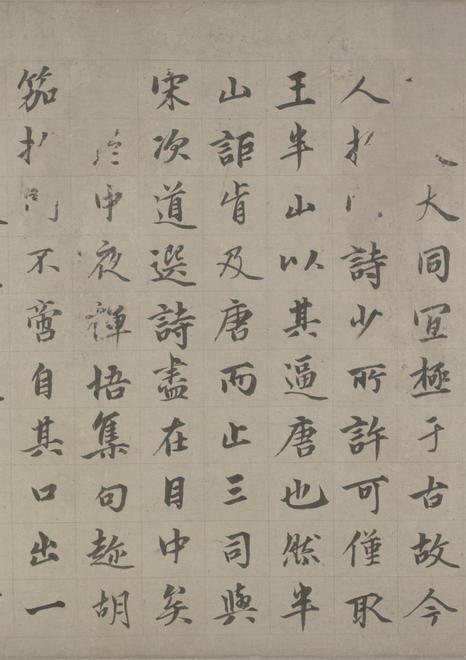 大同宜極于古故今
人詩少所許可僅取
王半山以其逼唐也然半
山詎肯及唐而止三司與
宋次道選詩盡在目中矣
中夜禪悟集句胡
笳不啻自其口出一